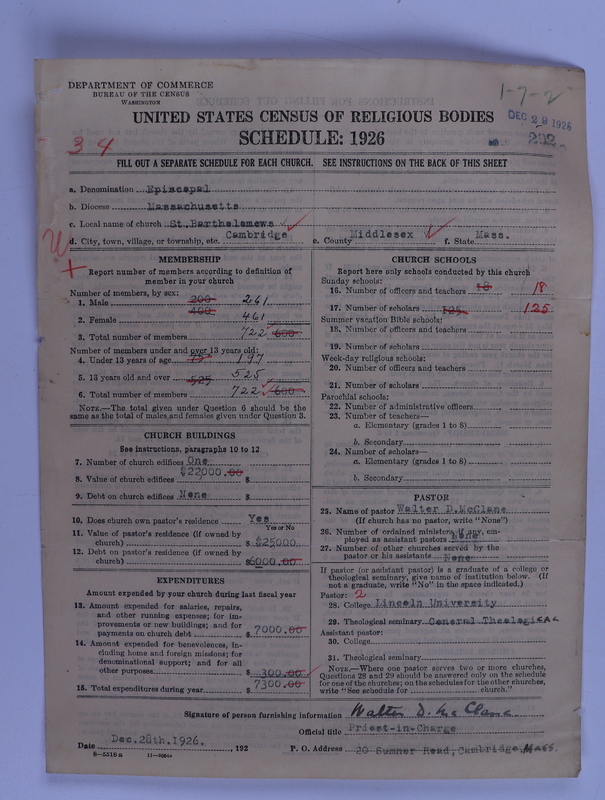 DEPARTMENT OF COMMERCE
BUREAU OF THE CENSUS
WASHINGTON
1-7-2
DEC 29 1926
292
UNITED STATES CENSUS OF RELIGIOUS BODIES
SCHEDULE: 1926
3 4
FILL OUT A SEPARATE SCHEDULE FOR EACH CHURCH. SEE INSTRUCTIONS ON THE BACK OF THIS SHEET
a. Denomination Episcopal
b. Diocese Massachusetts
c. Local name of church St.Barthelemews
d. City, town, village, or township, etc. Cambridge e. County Middlesex f. State Mass.
MEMBERSHIP
Report number of members according to definition of
member in your church
Number of members, by sex:
1. Male 200 261
2. Female 400 461
3. Total number of members 722 600
Number of members under and over 13 years old:
4. Under 13 years of age 75 197
5. 13 years old and over 525 525
6. Total number of members 722 600
NOTE.—The total given under Question 6 should be the
same as the total of males and females given under Question 3.
CHURCH BUILDINGS
See instructions, paragraphs 10 to 12
7. Number of church edifices One
8. Value of church edifices $22000.00 $
9. Debt on church edifices None $
10. Does church own pastor's residence Yes
Yes or No
11. Value of pastor's residence (if owned by
church) $ $25000
12. Debt on pastor's residence (if owned by
church) $6000.00
EXPENDITURES
Amount expended by your church during last fiscal year
13. Amount expended for salaries, repairs,
and other running expenses; for im-
provements or new buildings; and for
payments on church debt $ 7000.00
14. Amount expended for benevolences, in-
cluding home and foreign missions; for
denominational support; and for all
other purposes $ 300.00
15. Total expenditures during year $ 7300.00
CHURCH SCHOOLS
Report here only schools conducted by this church
Sunday schools:
16. Number of officers and teachers 18 18
17. Number of scholars 125 125
Summer vacation Bible schools:
18. Number of officers and teachers
19. Number of scholars
Week-day religious schools:
20. Number of officers and teachers
21. Number of scholars
Parochial schools:
22. Number of administrative officers
23. Number of teachers—
a. Elementary (grades 1 to 8)
b. Secondary
24. Number of scholars—
a. Elementary (grades 1 to 8)
b. Secondary
PASTOR
25. Name of pastor Walter D.McClane
(If church has no pastor, write "None")
26. Number of ordained ministers, if any, em-
ployed as assistant pastors None
27. Number of other churches served by the
pastor or his assistants None
If pastor (or assistant pastor) is a graduate of a college or
theological seminary, give name of institution below. (If
not a graduate, write "No" in the space indicated.)
Pastor: 2
28. College Lincoln University
29. Theological seminary General Theological
Assistant pastor:
30. College
31. Theological seminary
NOTE.—Where one pastor serves two or more churches,
Questions 28 and 29 should be answered only on the schedule
for one of the churches; on the schedules for the other churches,
write "See schedule for church."
Signature of person furnishing information Walter D. McClane
Official title Priest-in-Charge
Date Dec.28th.1926. , 192 P. O. Address 20 Sumner Road, Cambridge, Mass.
8-5518a